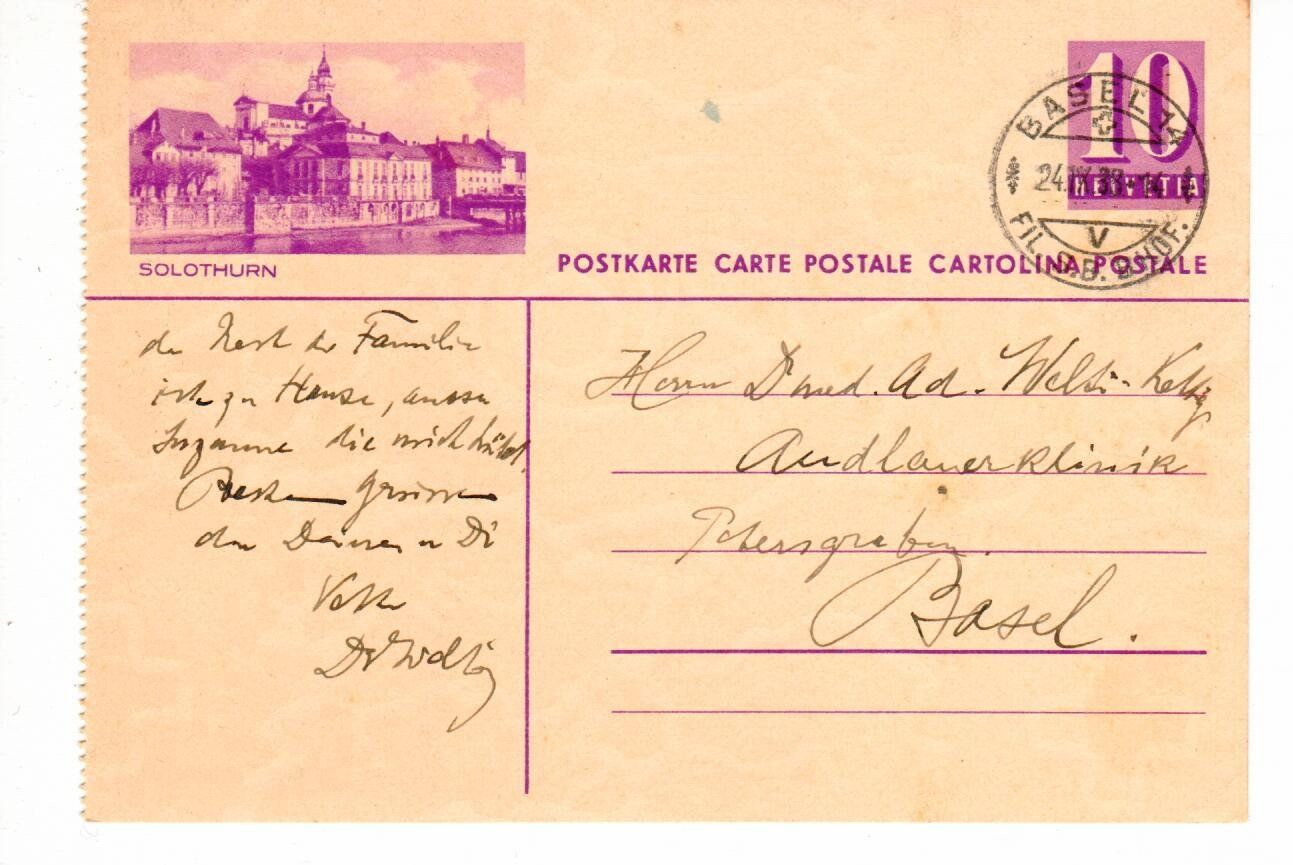 SOLOTHURN
10
HELVETIA
BASEL
24.IX.38-14
V
FIL. S.B. BHOF.
POSTKARTE CARTE POSTALE CARTOLINA POSTALE
der Rest der Familie
ist zu Hause, ausser
Suzanne die mich hütet.
Besten Grüsse
den Damen u Di
Herrn Dr med. Ad. Welti-
Andlauerklinik
Petersgraben.
Basel.